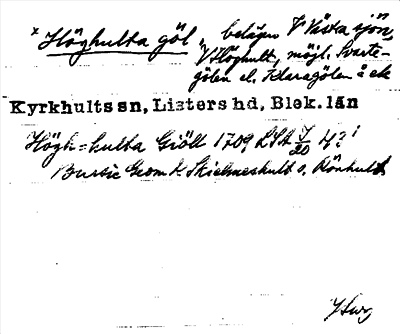 × Höghulta göl, belägen V Västa sjön,
V Höghult, möjl. Svarte-
gölen el. Klaragölen å ek
Kyrkhults sn, Listers hd, Blek. län
Högh=hulta Giöll 1709 LSA J/20 4?
Geom K Skielmeskult o. Rönhult